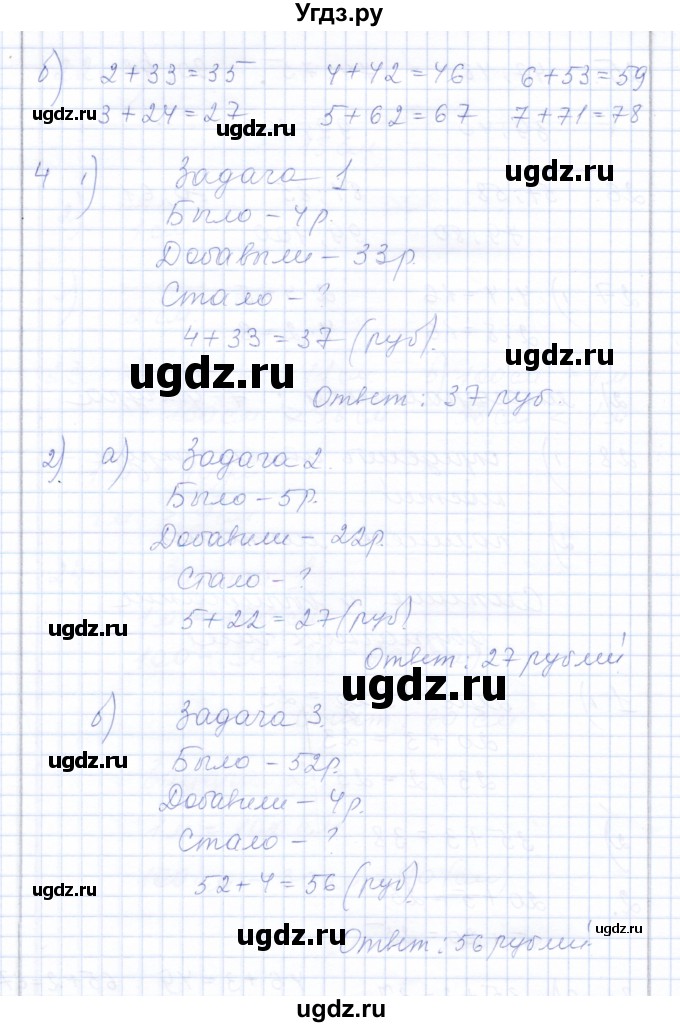 Угдз.ру
б) 2 + 33 = 35 4 + 42 = 46 6 + 53 = 59
ugdz.ru 3 + 24 = 27 ugdz.ru 5 + 62 = 67 7 + 71 = 78
ugdz.ru
4 1) Задача 1
Было - 4р.
ugdz.ru
Добавили - 33р.
Стало - ?
4 + 33 = 37 (руб).
ugdz.ru
ugdz.ru
Ответ: 37 руб.
2) а) Задача 2.
Было - 5р.
ugdz.ru
Добавили - 22р.
Стало - ?
5 + 22 = 27 (руб)
ugdz.ru
Ответ: 27 рублей
ugdz.ru
б) Задача 3.
ugdz.ru
Было - 52р.
Добавили - 4р.
Стало - ?
52 + 4 = 56 (руб)
ugdz.ru
ugdz.ru
ugdz.ru
Ответ: 56 рублей
ugdz.ru